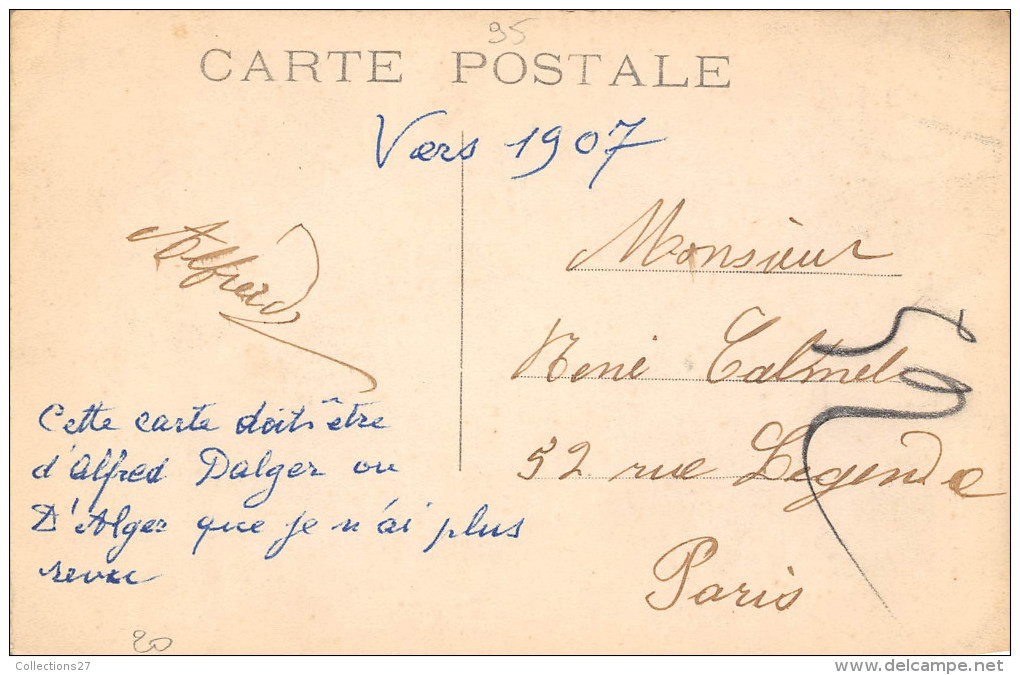 95
CARTE POSTALE
Vers 1907
Alfred
Monsieur
René Calmel
52 rue Legende
Paris
Cette carte doit être
d'Alfred Dalger ou
D'Alger que je n'ai plus
revu
20
Collections27
delcampe.net